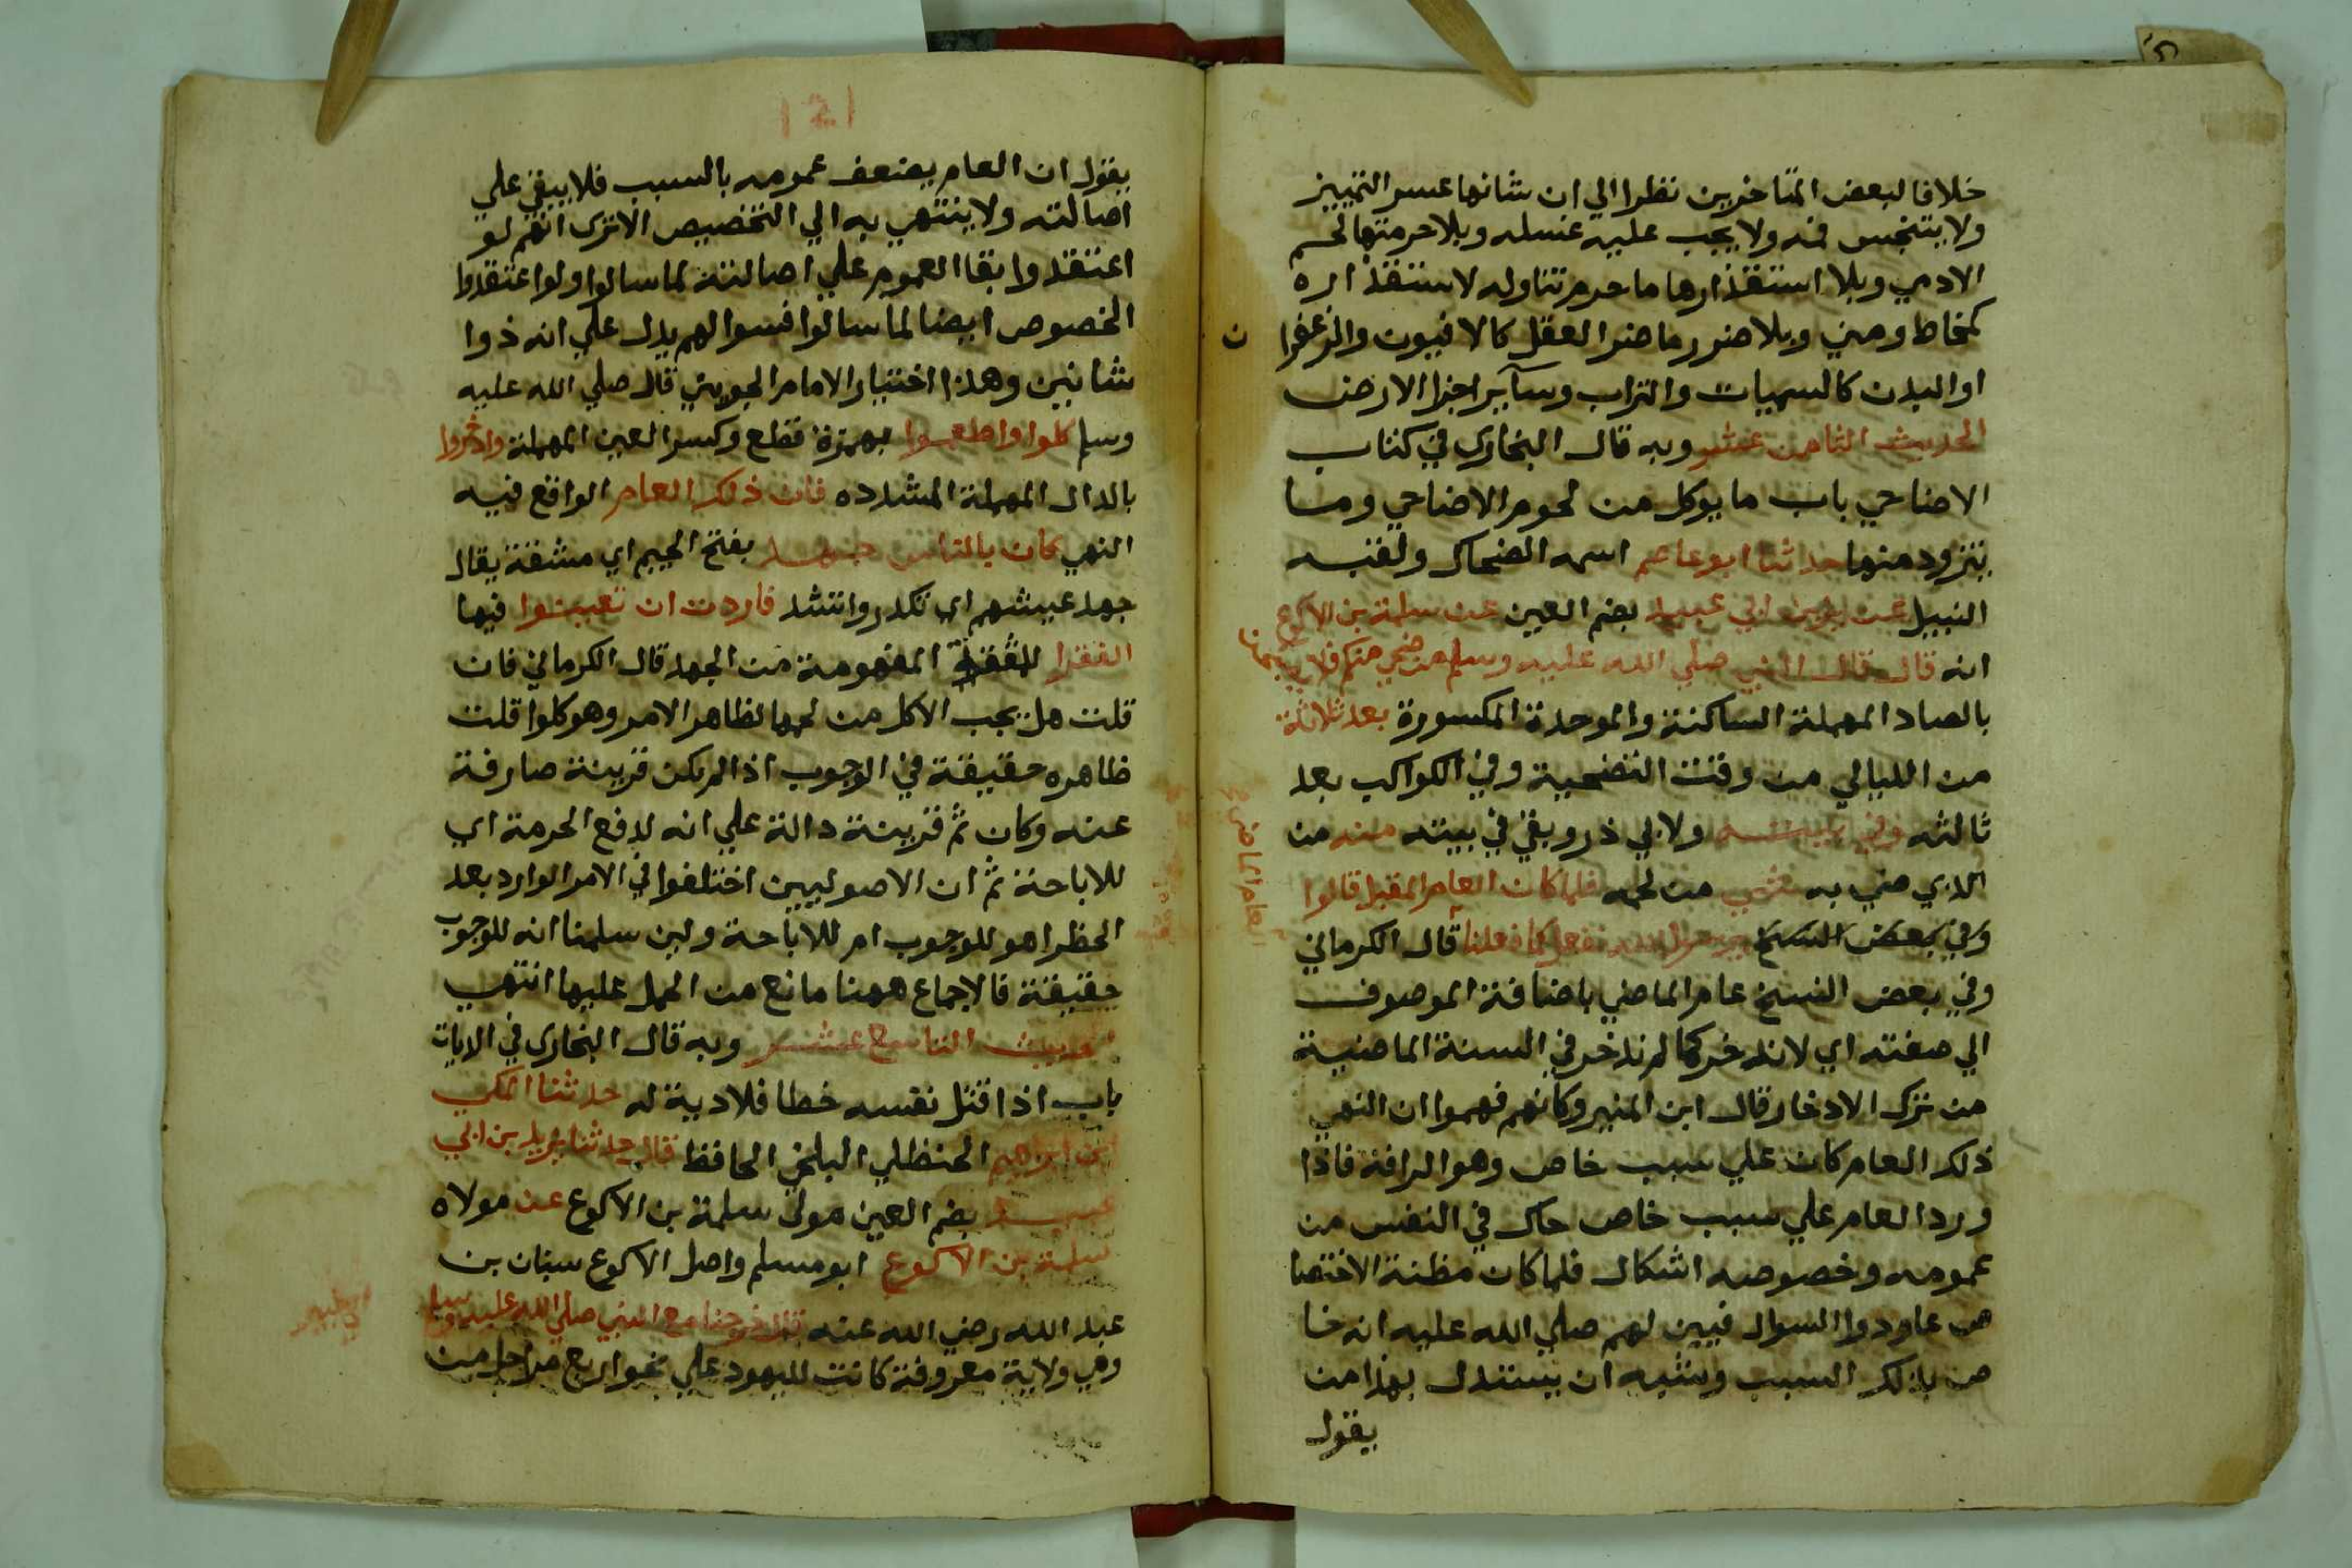 خلافا لبعض المتاخرين نظرا الي ان شانها عسر التمييز
ولا يتنجس فمه ولا يجب عليه غسله وبلا حرمتها لحم
الادمي وبلا استقذارها ما حرم تناوله لاستقذاره
كمخاط ومني وبلا ضرر ما ضر العقل كالافيون والزعفران
او البدن كالسميات والتراب وسآير اجزا الارض
الحديث الثامن عشر وبه قال البخاري في كتاب
الاضاحي باب ما يوكل من لحوم الاضاحي وما
يتزود منها حدثنا ابو عاصم اسمه الضحاك ولقبه
النبيل عن يزيد بن ابي عبيد بضم العين عن سلمة بن الاكوع
انه قال قال النبي صلي الله عليه وسلم من ضحي منكم فلا يصبحن
بالصاد المهملة الساكنة والموحدة المكسورة بعد ثلاثة
من الليالي من وقت التضحية وفي الكواكب بعد
ثالثه وفي بيته ولابي ذر وبقي في بيته منه من
الذي ضحي به شي من لحمه فلما كان العام المقبل قالوا
وفي بعض النسخ يا رسول الله نفعل كما فعلنا قال الكرماني
العام الماضي
وفي بعض النسخ عام الماضي باضافة الموصوف
الي صفته اي لا ندخر كما لم ندخر في السنة الماضية
من ترك الادخار قال ابن المنير وكانهم فهموا ان النهي
ذلك العام كان علي سبب خاص وهو الرافة فاذا
ورد العام علي سبب خاص حاك في النفس من
عمومه وخصوصه اشكال فلما كان مظنة الاختصا
ص عاودوا السوال فبين لهم صلي الله عليه انه خا
ص بذلك السبب ويشبه ان يستدل بهذا من
يقول
يقول ان العام يضعف عمومه بالسبب فلا يبقي علي
اصالته ولا ينتهي به الي التخصيص الا تري انهم لو
اعتقدوا بقا العموم علي اصالته لما سالوا ولو اعتقدوا
الخصوص ايضا لما سالوا فسوالهم يدل علي انه ذوا
شانين وهذا اختيار الامام الجويني قال صلي الله عليه
وسلم كلوا واطعموا بهمزة قطع وكسر العين المهملة وادخروا
بالدال المهملة المشدده فان ذلك العام الواقع فيه
النهي كان بالناس جهد بفتح الجيم اي مشقة يقال
جهد عيشهم اي تكدر واشتد فاردت ان تعينوا فيها
الفقرا للمشقة المفهومة من الجهد قال الكرماني فان
قلت هل يجب الاكل من لحمها لظاهر الامر وهو كلوا قلت
ظاهره حقيقة في الوجوب اذا لم يكن قرينة صارفة
عنه وكان ثم قرينة دالة علي انه لدفع الحرمة اي
للاباحة ثم ان الاصوليين اختلفوا في الامر الوارد بعد
الحظر اهو للوجوب ام للاباحة ولين سلمنا انه للوجوب
حقيقة فالاجماع ههنا مانع من الحمل عليها انتهي
الحديث التاسع عشر وبه قال البخاري في الديات
باب اذا قتل نفسه خطا فلا دية له حدثنا المكي
ابن ابراهيم الحنظلي البلخي الحافظ قال حدثنا يزيد بن ابي
عبيد بضم العين مولي سلمة بن الاكوع عن مولاه
سلمة بن الاكوع ابو مسلم واصل الاكوع سنان بن
عبد الله رضي الله عنه قال خرجنا مع النبي صلي الله عليه وسلم
الي خيبر
وهي ولاية معروفة كانت لليهود علي نحو اربع مراحل من